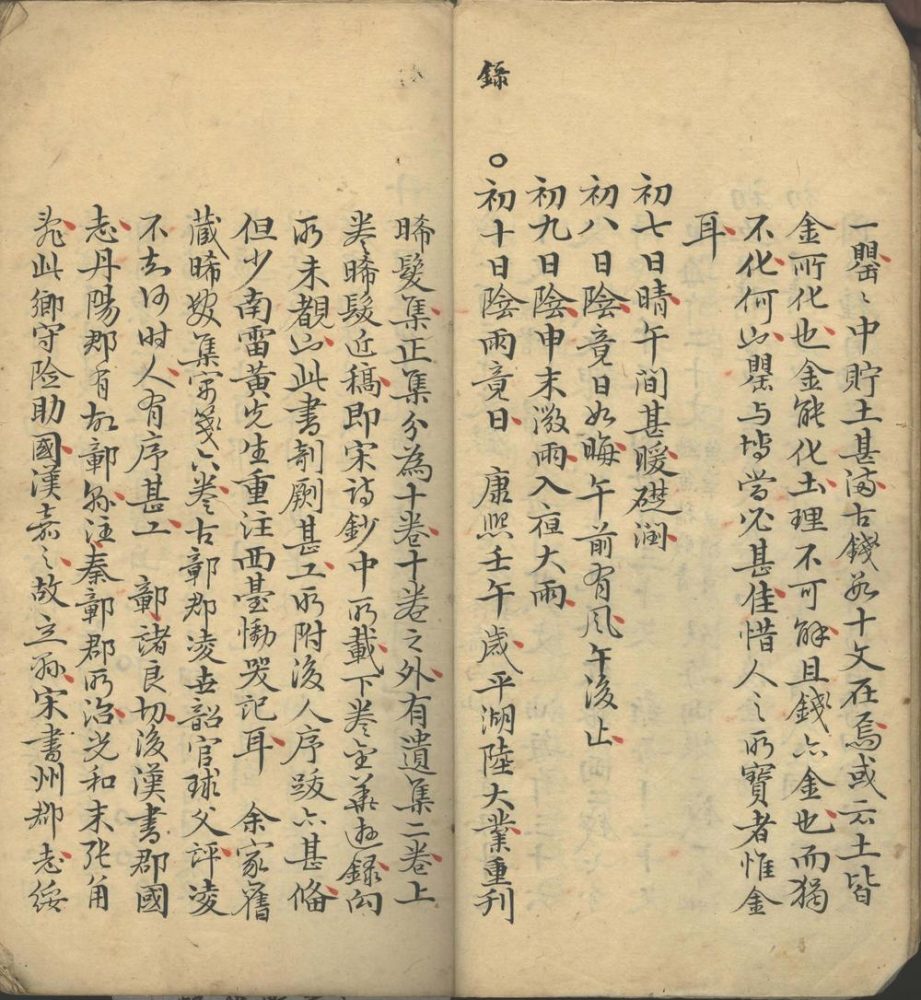 一罌〻中貯土甚滿古錢數十文在焉或云土皆
金所化也金能化土理不可解且錢亦金也而猶
不化何也罌与塼嘗必甚佳惜人之所寶者惟金
耳
初七日晴午間甚暖礎潤
初八日陰竟日如晦午前有風午後止
初九日陰申末激雨入夜大雨
錄
○初十日陰雨竟日 康熙壬午歲平湖陸大業重刊
晞髮集正集分為十卷十卷之外有遺集二卷上
卷晞髮近稿即宋詩鈔中所載下卷金華遊錄向
所未覩也此書剞劂甚工所附後人序跋亦甚備
但少南雷黃先生重注西臺慟哭記耳 余家舊
藏晞髮集寫箋六卷古鄣郡凌世韶官球父評凌
不知何時人有序甚工 鄣諸良切後漢書郡國
志丹陽郡有故鄣縣注秦鄣郡所治光和末張角
亂此鄉守險助國漢嘉之故立縣宋書州郡志綏